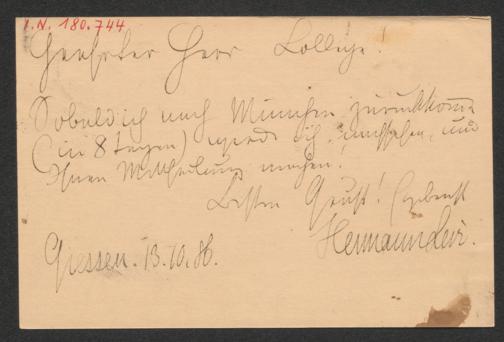 I.N. 180.744
Geehrter Herr College!
Sobald ich nach München zurückkomme
(in 8 Tagen) werde ich nachsehen, und
Ihnen Mittheilung machen.
Besten Gruß! Ergebenst
Hermann Levi.
Giessen. 13.10.86.